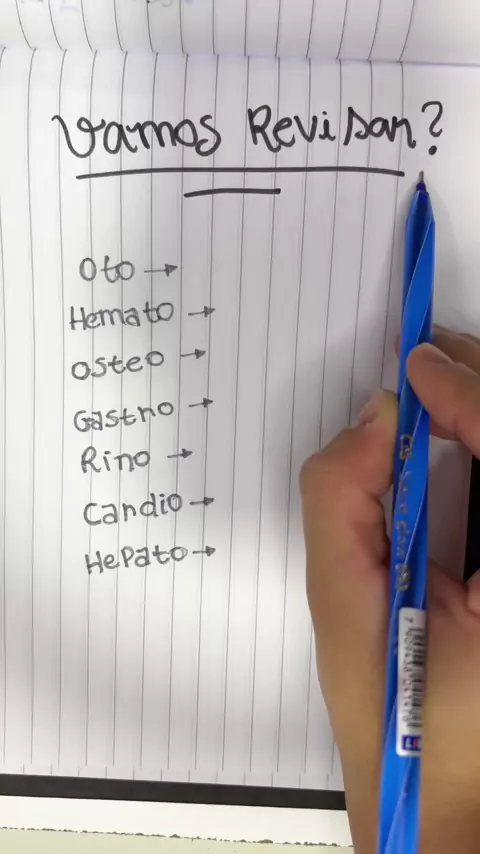 Vamos Revisar?
Oto →
Hemato →
Osteo →
Gastro →
Rino →
Cardio →
Hepato →